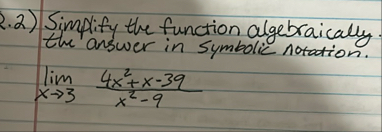 2.2) Simplify the function algebraically.
the answer in symbolic notation.
lim 4x²+x-39
x→3 x²-9